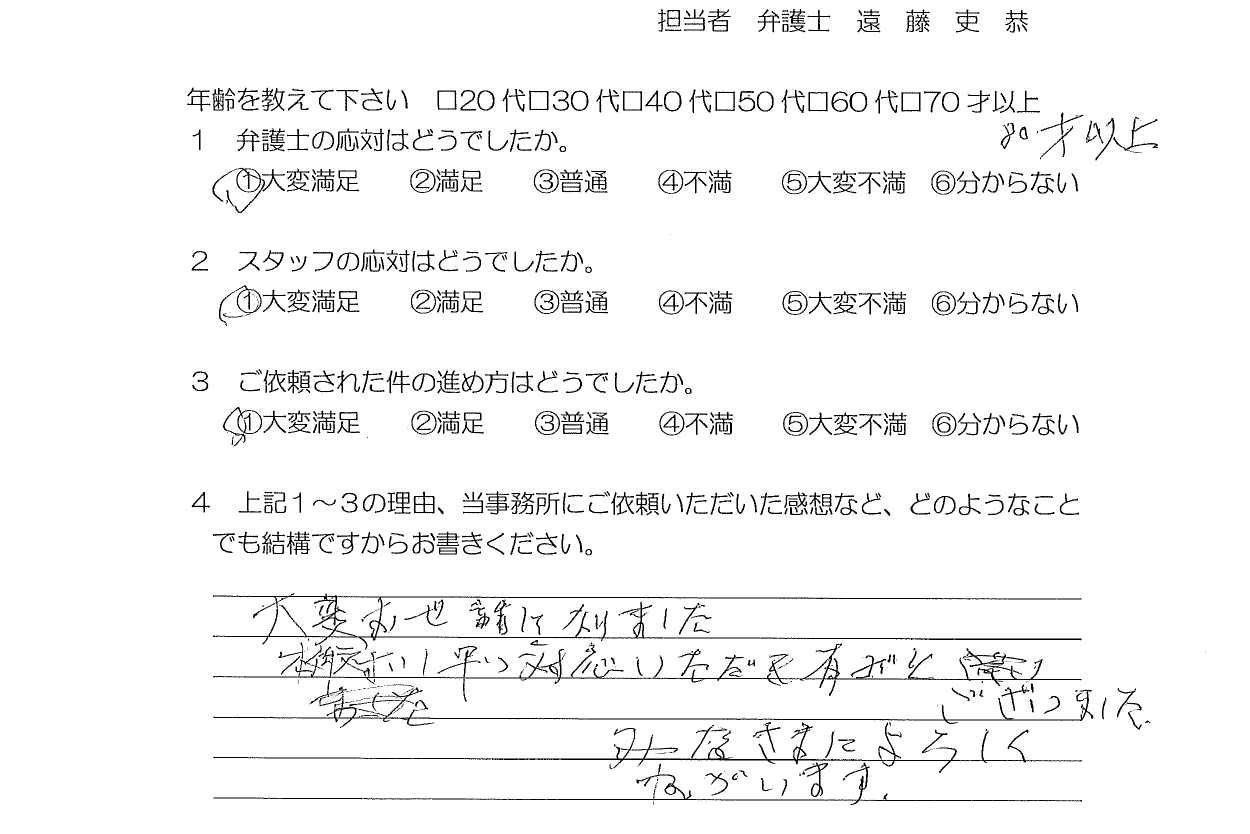 担当者 弁護士 遠藤吏恭
年齢を教えて下さい □20代□30代□40代□50代□60代□70才以上
80才以上
1 弁護士の応対はどうでしたか。
①大変満足 ②満足 ③普通 ④不満 ⑤大変不満 ⑥分からない
2 スタッフの応対はどうでしたか。
①大変満足 ②満足 ③普通 ④不満 ⑤大変不満 ⑥分からない
3 ご依頼された件の進め方はどうでしたか。
①大変満足 ②満足 ③普通 ④不満 ⑤大変不満 ⑥分からない
4 上記1～3の理由、当事務所にご依頼いただいた感想など、どのようなこと
でも結構ですからお書きください。
大変お世話になりました
早い対応いただき有がと
ございました。
みなさまによろしく
ねがいます。